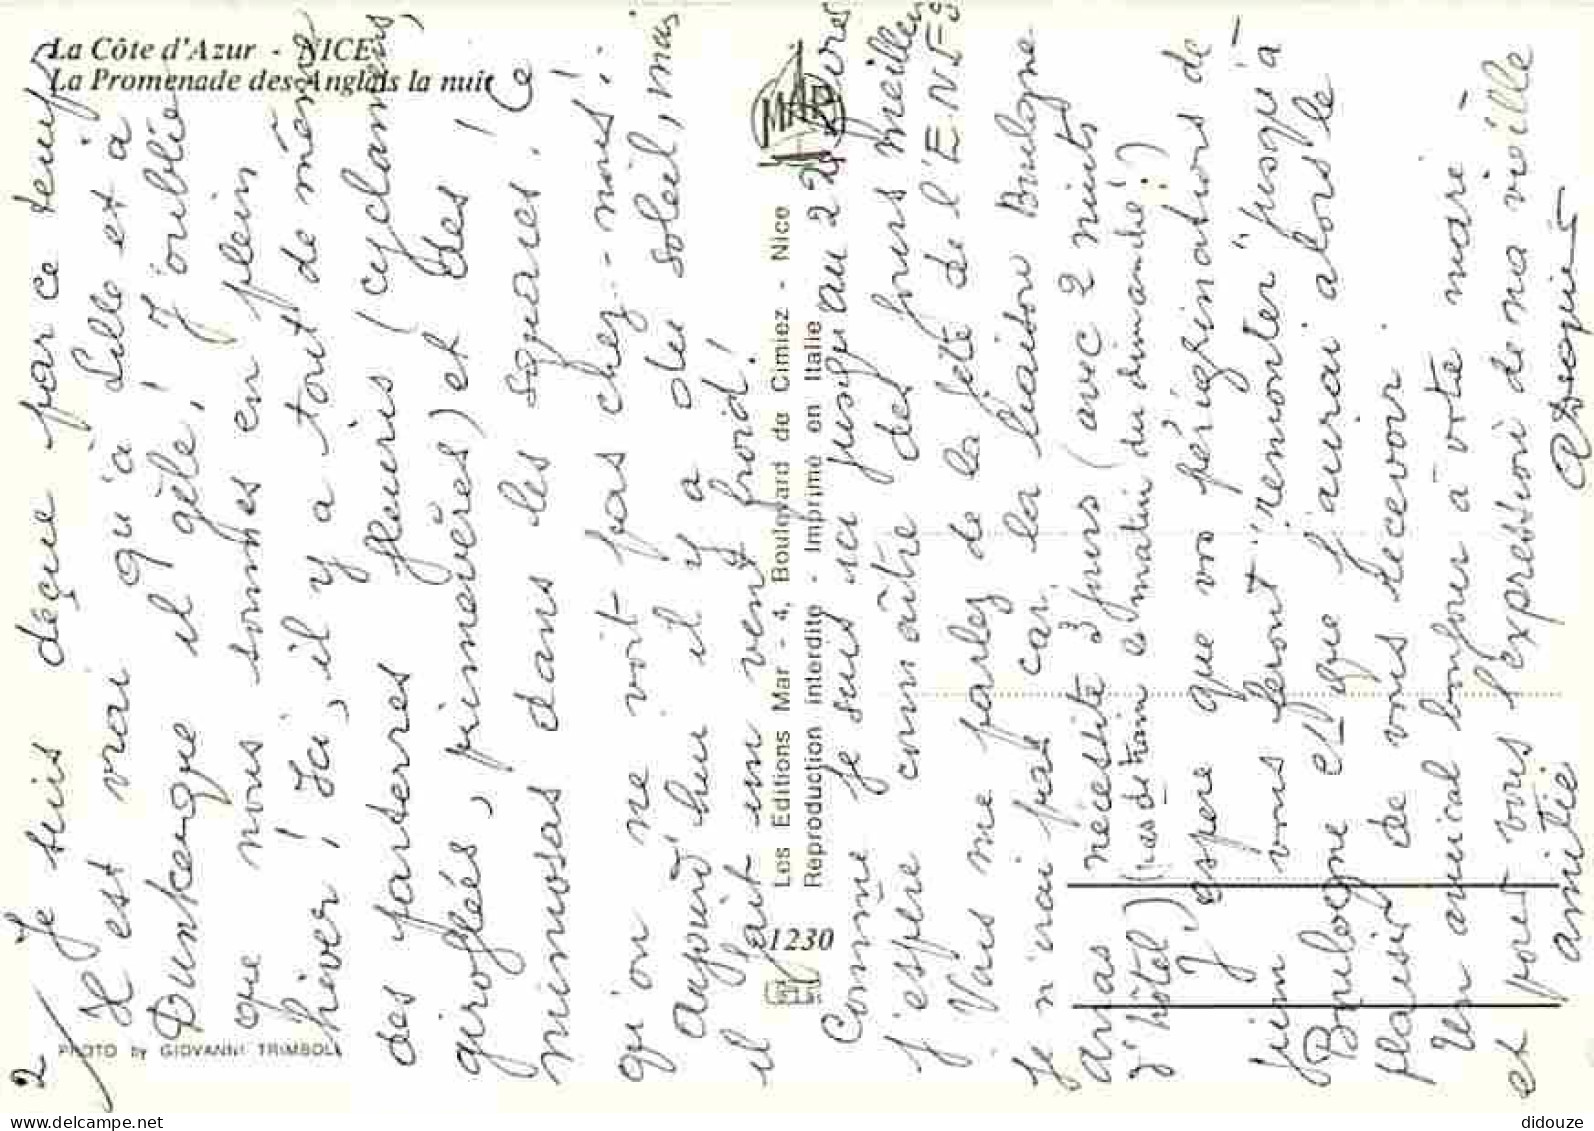 La Côte d'Azur - NICE
La Promenade des Anglais la nuit
PHOTO by GIOVANNI TRIMBOLI
1230
Les Editions Mar - 4, Boulevard de Cimiez - Nice
Reproduction interdite - Imprimé en Italie
MAR
2/
Je suis déçue par ce temps
Il est vrai qu'à Lille et à
Dunkerque il gèle! J'oublie
que nous sommes en plein
hiver! Ici, il y a tout de même
des parterres fleuris (cyclamens,
giroflées, primevères) et des
mimosas dans les squares! Ce
qu'on ne voit pas chez-nous!
Aujourd'hui il y a du soleil, mais
il fait un vent froid!
Comme je suis ici jusqu'au 22
j'espère connaître des jours meilleurs
Vous me parlez de la fête de l'E.N.F
je n'irai pas car la liaison Boulogne
Arras nécessite 3 jours (avec 2 nuits
d'hôtel) (pas de train le matin du dimanche!)
J'espère que vos pérégrinations de
juin vous feront "remonter" jusqu'à
Boulogne et que j'aurai alors le
plaisir de vous recevoir.
Un amical bonjour à votre mari
et pour vous l'expression de ma vieille
amitié
didouze